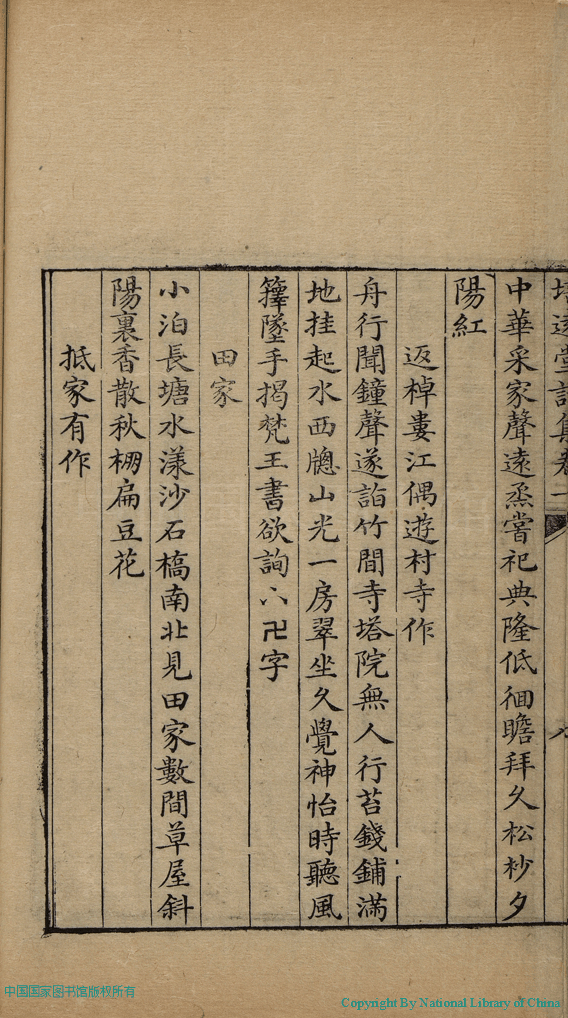 中華采家聲遠烝嘗祀典隆低徊瞻拜久松杪夕
陽紅
返棹婁江偶遊村寺作
舟行聞鐘聲遂詣竹間寺塔院無人行苔錢鋪滿
地挂起水西牕山光一房翠坐久覺神怡時聽風
籜墜手揭梵王書欲詢八卍字
田家
小泊長塘水漾沙石橋南北見田家數間草屋斜
陽裏香散秋棚扁豆花
抵家有作
中国国家图书馆版权所有
Copyright By National Library of China